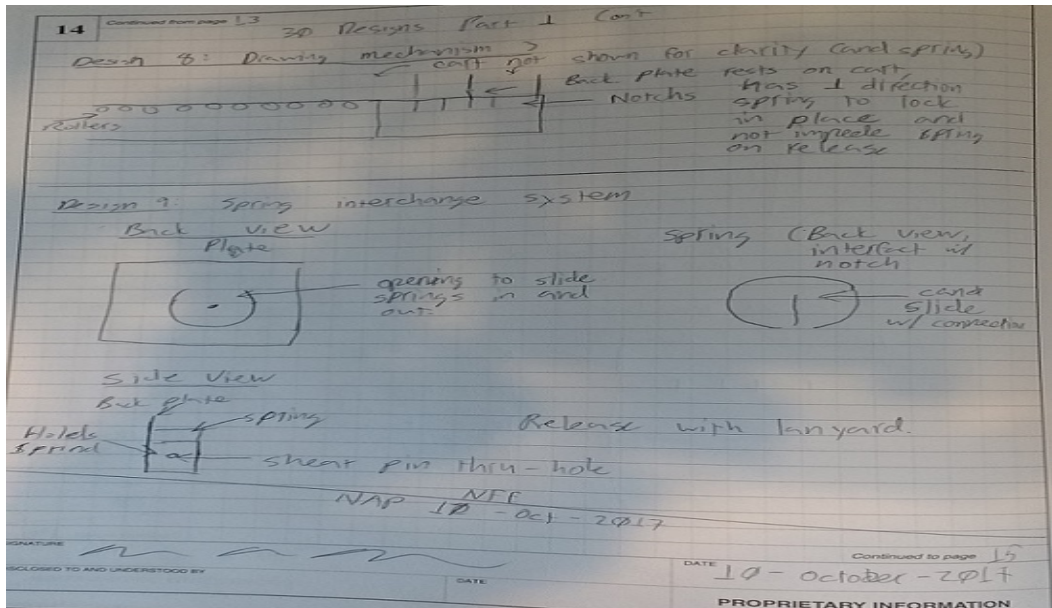 14 Continued from page 13
30 Designs Part 1 Cont
Design 8: Drawing mechanism
cart not shown for clarity (and spring)
Back plate rests on cart,
Notchs has 1 direction
spring to lock
in place and
not impede spring
on release
Rollers
Design 9: Spring interchange system
Back view
Plate
opening to slide
springs in and
out.
Spring (Back view,
interfact w/
notch
slide
w/ connection
Side View
Back plate
spring
Holds
Release with lanyard.
shear pin thru-hole
NAP NFE
10-Oct-2017
SIGNATURE
Continued to page 15
DISCLOSED TO AND UNDERSTOOD BY
DATE
DATE 10-October-2017
PROPRIETARY INFORMATION